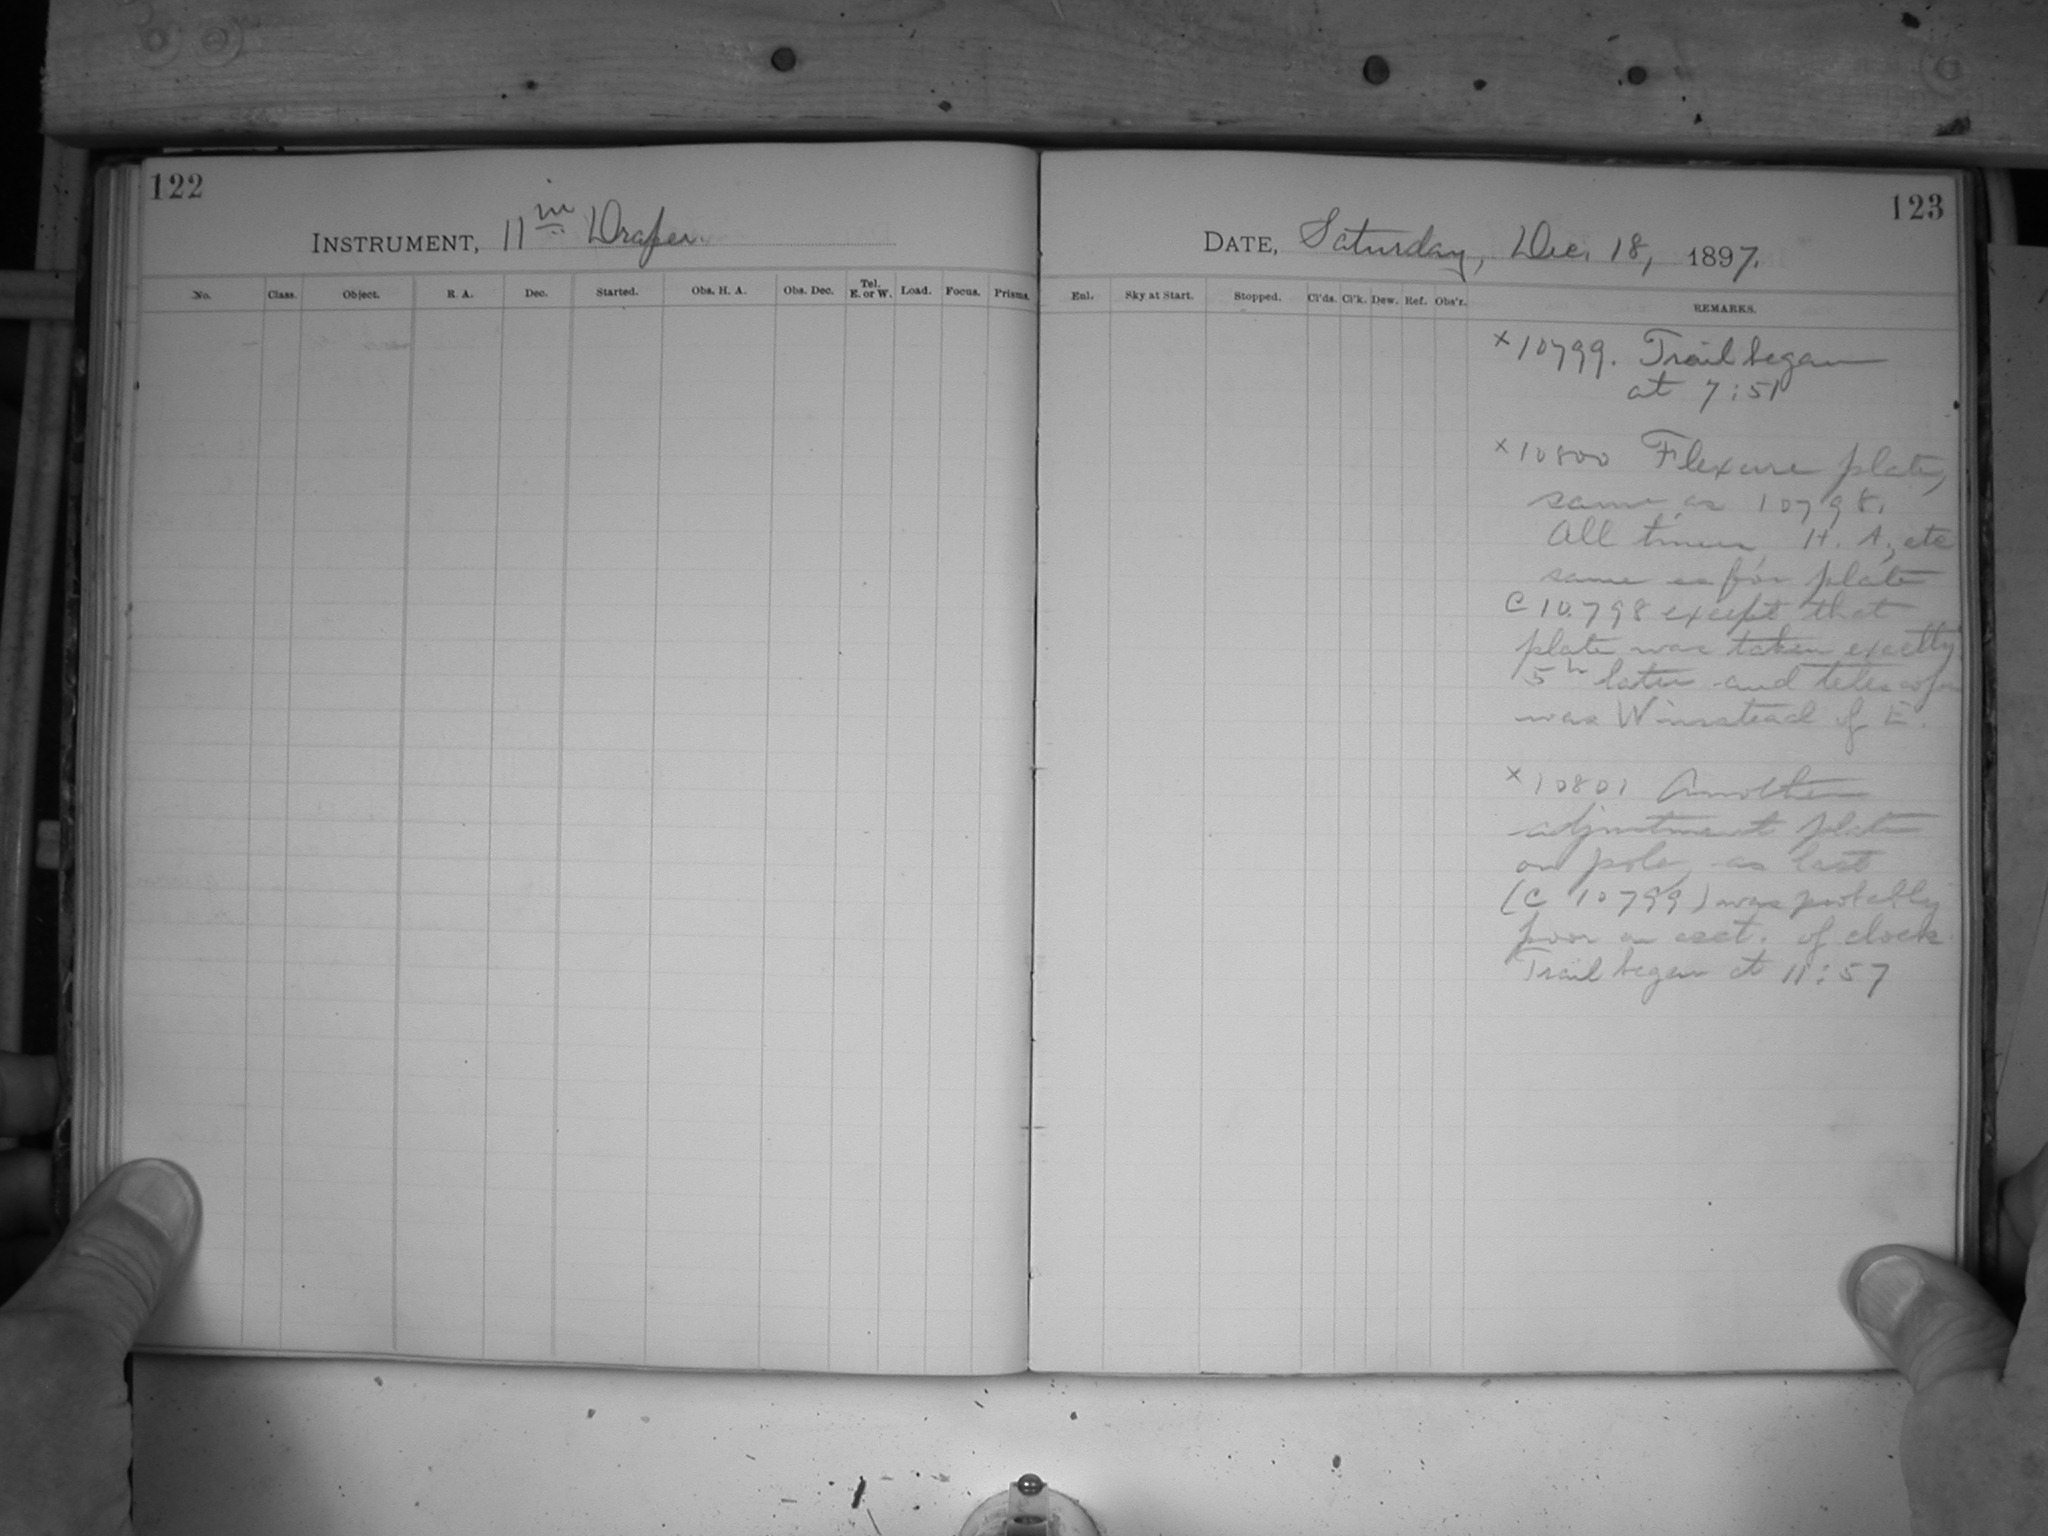 122
INSTRUMENT, 11 in Draper.
No. Class. Object. R. A. Dec. Started. Obs. H. A. Obs. Dec. Tel. E. or W. Load. Focus. Prisms.
123
DATE, Saturday, Dec. 18, 1897.
Enl. Sky at Start. Stopped. Cl'ds. Cl'k. Dew. Ref. Obs'r. REMARKS.
x 10799. Trail began
at 7:51
x 10800 Flexure plate,
same as 10798.
All times, H. A., etc
same as for plate
C 10798 except that
plate was taken exactly
5h later and telescope
was W instead of E.
x 10801 Another
adjustment plate
on pole, as last
(C 10799) was probably
poor on acct. of clock
Trail began at 11:57